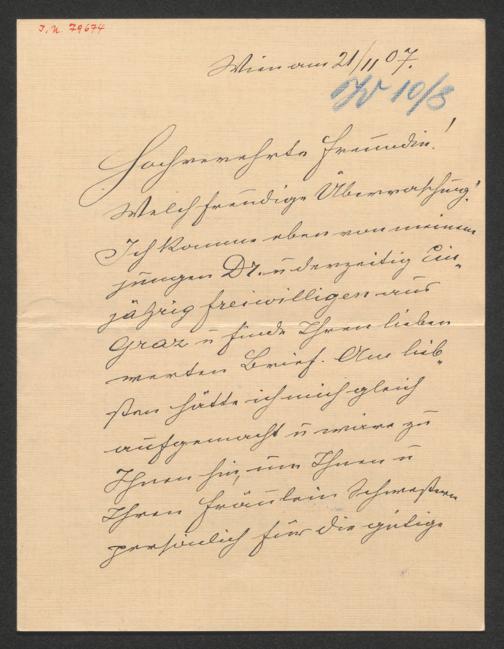 J.N. 79674
Wien am 21/11 07.
10/8
Hochverehrte Freundin!
Welch freudige Überraschung!
Ich komme eben von meinem
jungen Dr. u derzeitig Ein-
jährig freiwilligen aus
Graz u finde Ihren lieben
werten Brief. Am lieb-
sten hätte ich mich gleich
aufgemacht u wäre zu
Ihnen hin, um Ihnen u
Ihren Fräulein Schwestern
persönlich für die gütige